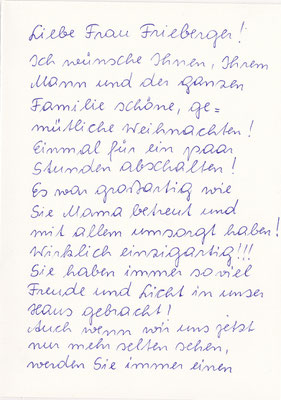 Liebe Frau Frieberger!
Ich wünsche Ihnen, Ihrem
Mann und der ganzen
Familie schöne, ge=
mütliche Weihnachten!
Einmal für ein paar
Stunden abschalten!
Es war großartig wie
Sie Mama betreut und
mit allem umsorgt haben!
Wirklich einzigartig!!!
Sie haben immer so viel
Freude und Licht in unser
Haus gebracht!
Auch wenn wir uns jetzt
nur mehr selten sehen,
werden Sie immer einen